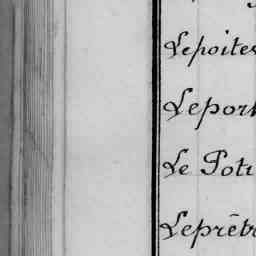 Lepoite
Lepor
Le Potr
Leprêtr